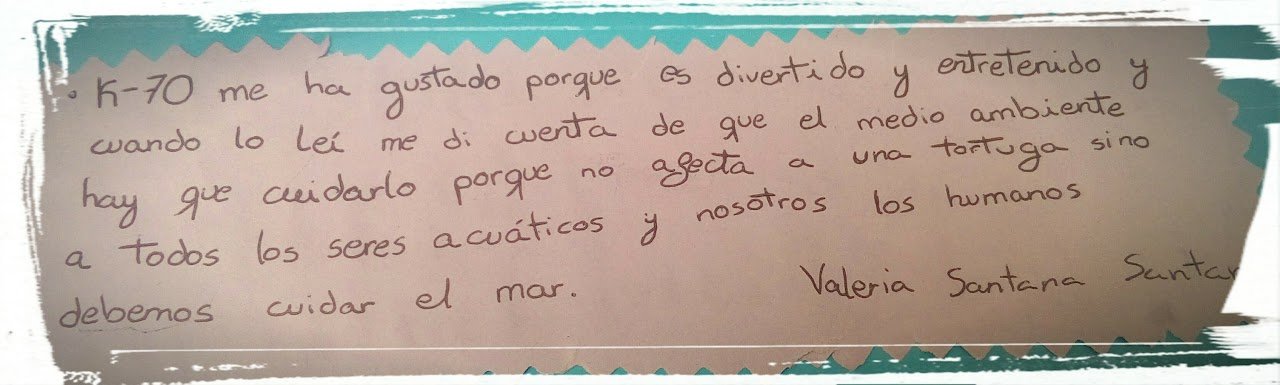 . K-70 me ha gustado porque es divertido y entretenido y
cuando lo leí me di cuenta de que el medio ambiente
hay que cuidarlo porque no afecta a una tortuga sino
a todos los seres acuáticos y nosotros los humanos
debemos cuidar el mar.
Valeria Santana